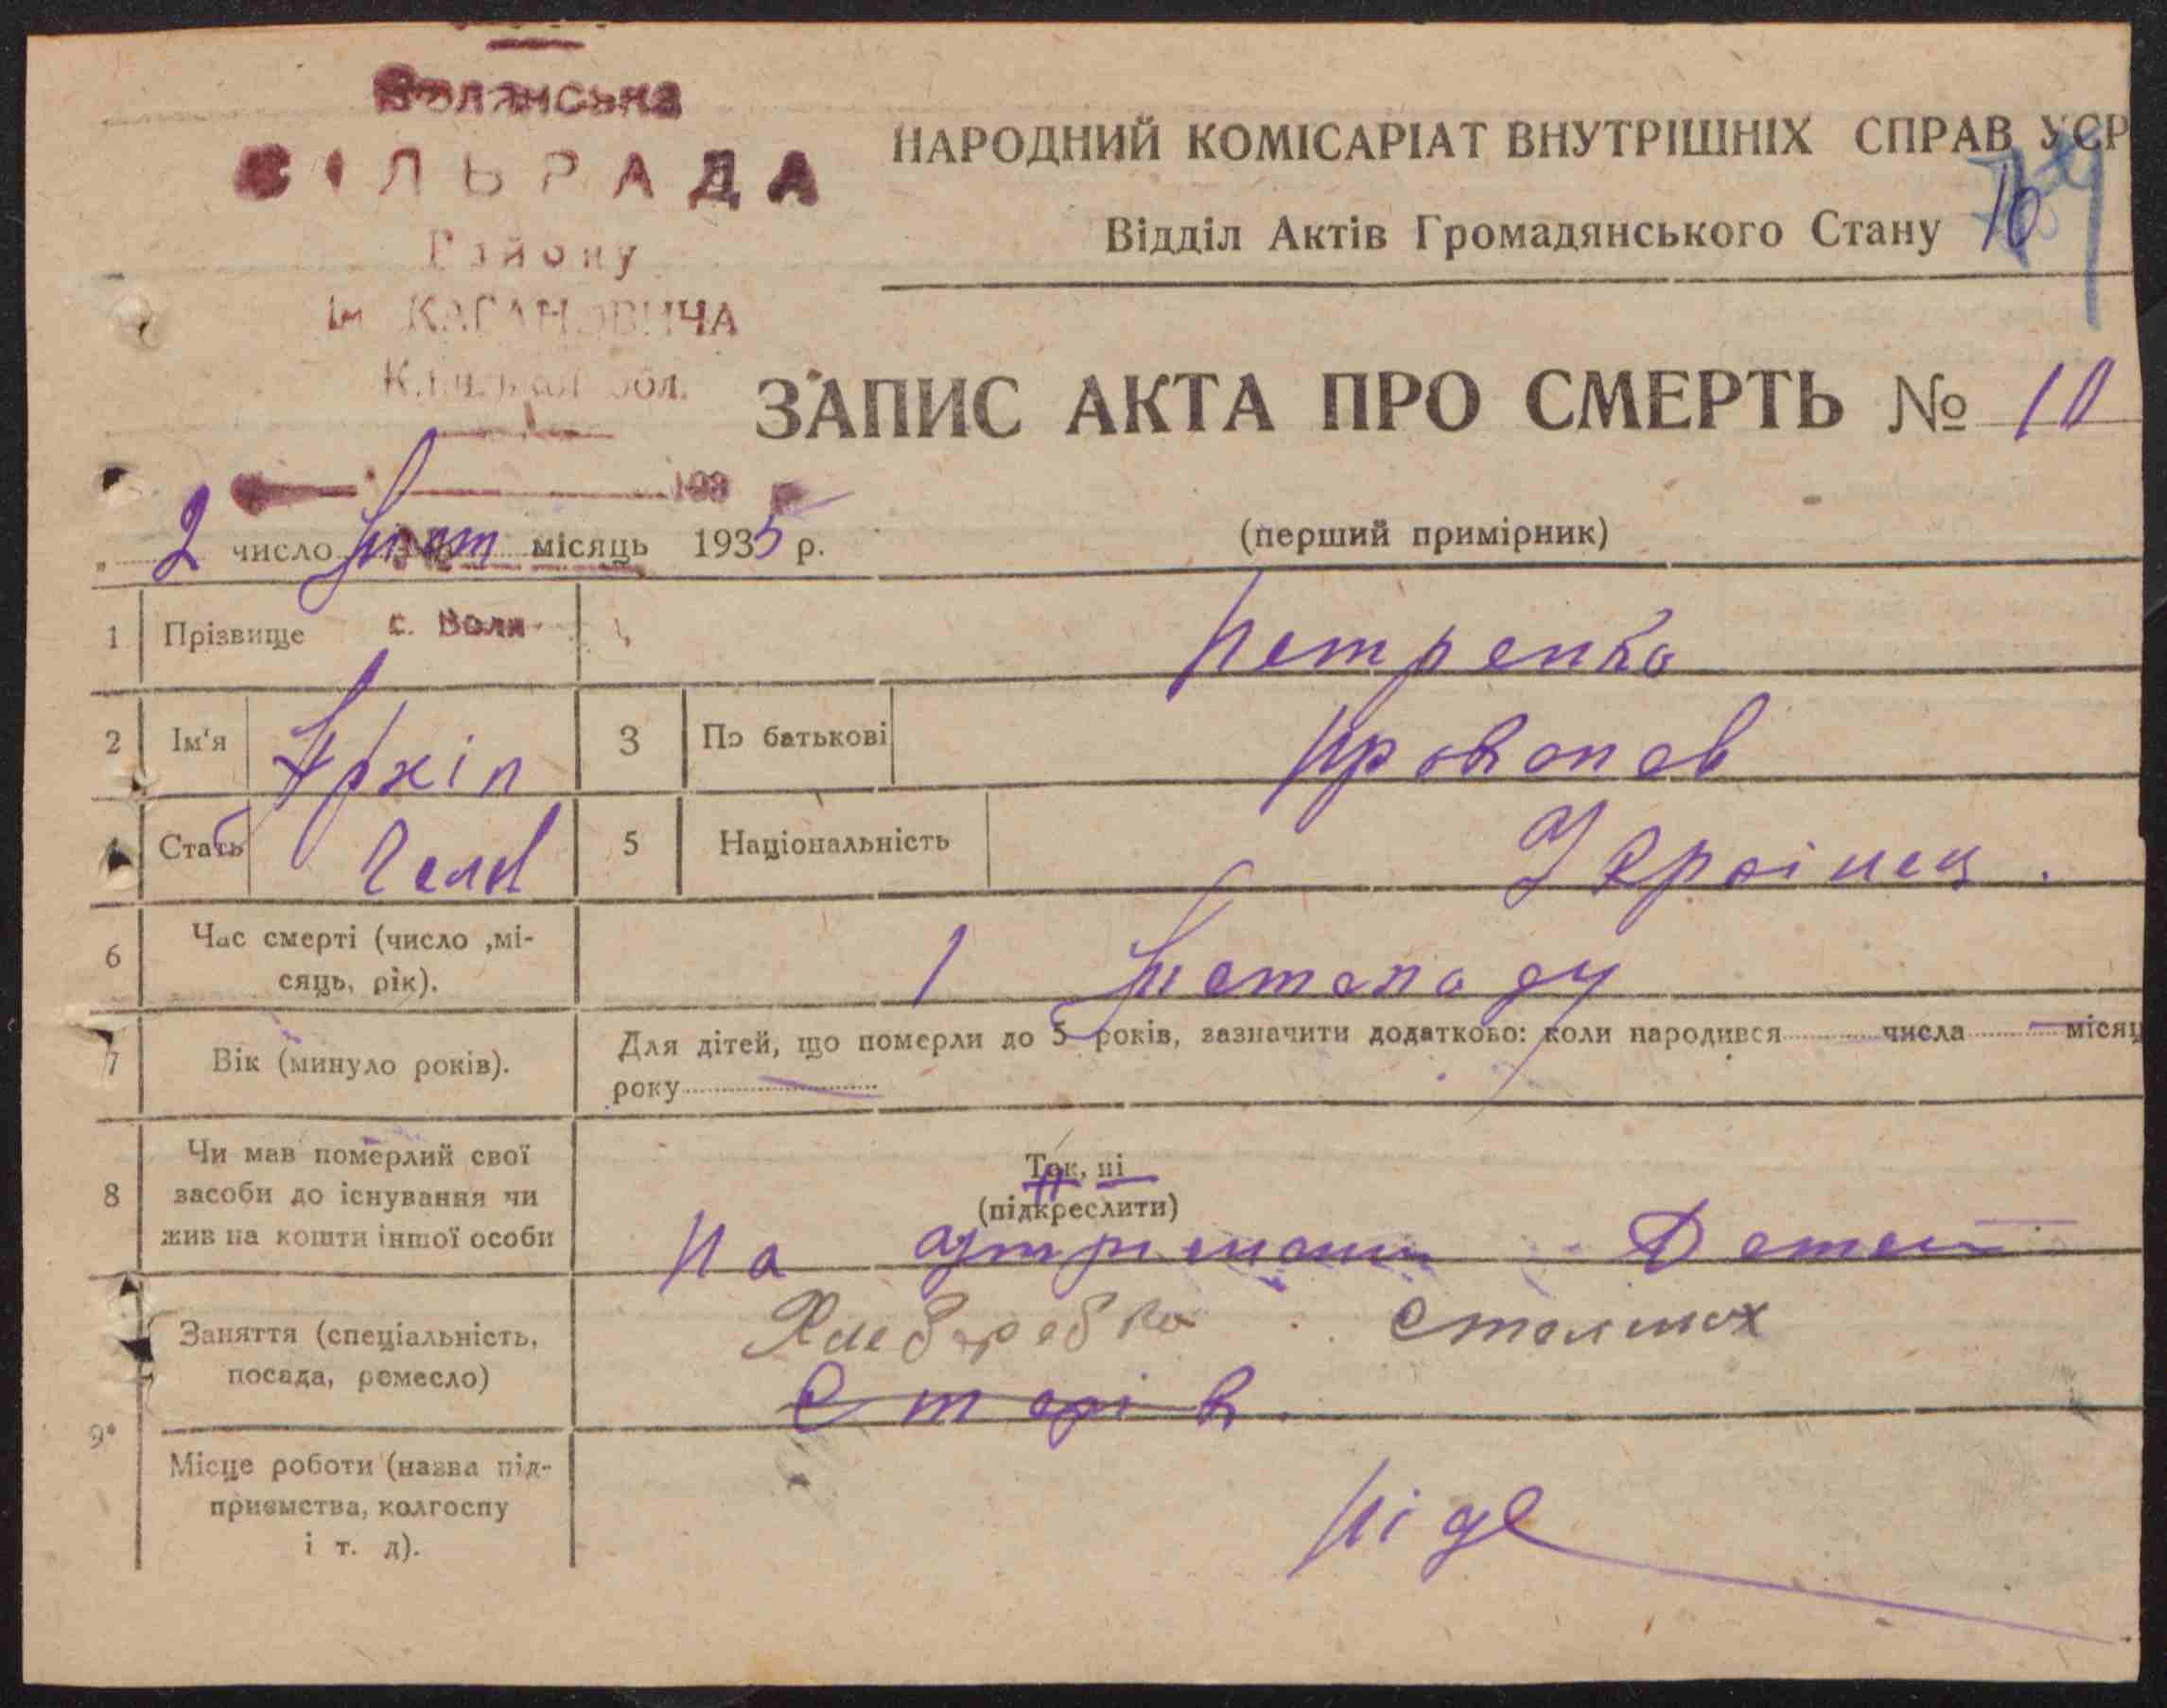 Волянська
СІЛЬРАДА
Району
ім КАГАНОВИЧА
Київської обл.
НАРОДНИЙ КОМІСАРІАТ ВНУТРІШНІХ СПРАВ УСР
Відділ Актів Громадянського Стану
ЗАПИС АКТА ПРО СМЕРТЬ № 10
193
„ 2 число Лист місяць 1935 р.
(перший примірник)
1 Прізвище с. Воля Петренко
2 Ім'я Архіп 3 По батькові Прокопов
4 Стать Чолов 5 Національність Українец.
6 Час смерті (число ,мі-
сяць, рік). 1 Листопаду
7 Вік (минуло років). Для дітей, що померли до 5 років, зазначити додатково: коли народився числа місяц
року
8 Чи мав померлий свої
засоби до існування чи
жив на кошти іншої особи
Так, ні
(підкреслити)
На Детей
9* Заняття (спеціальність,
посада, ремесло)
Старік.
Місце роботи (назва під-
приємства, колгоспу
і т. д).
Ніде